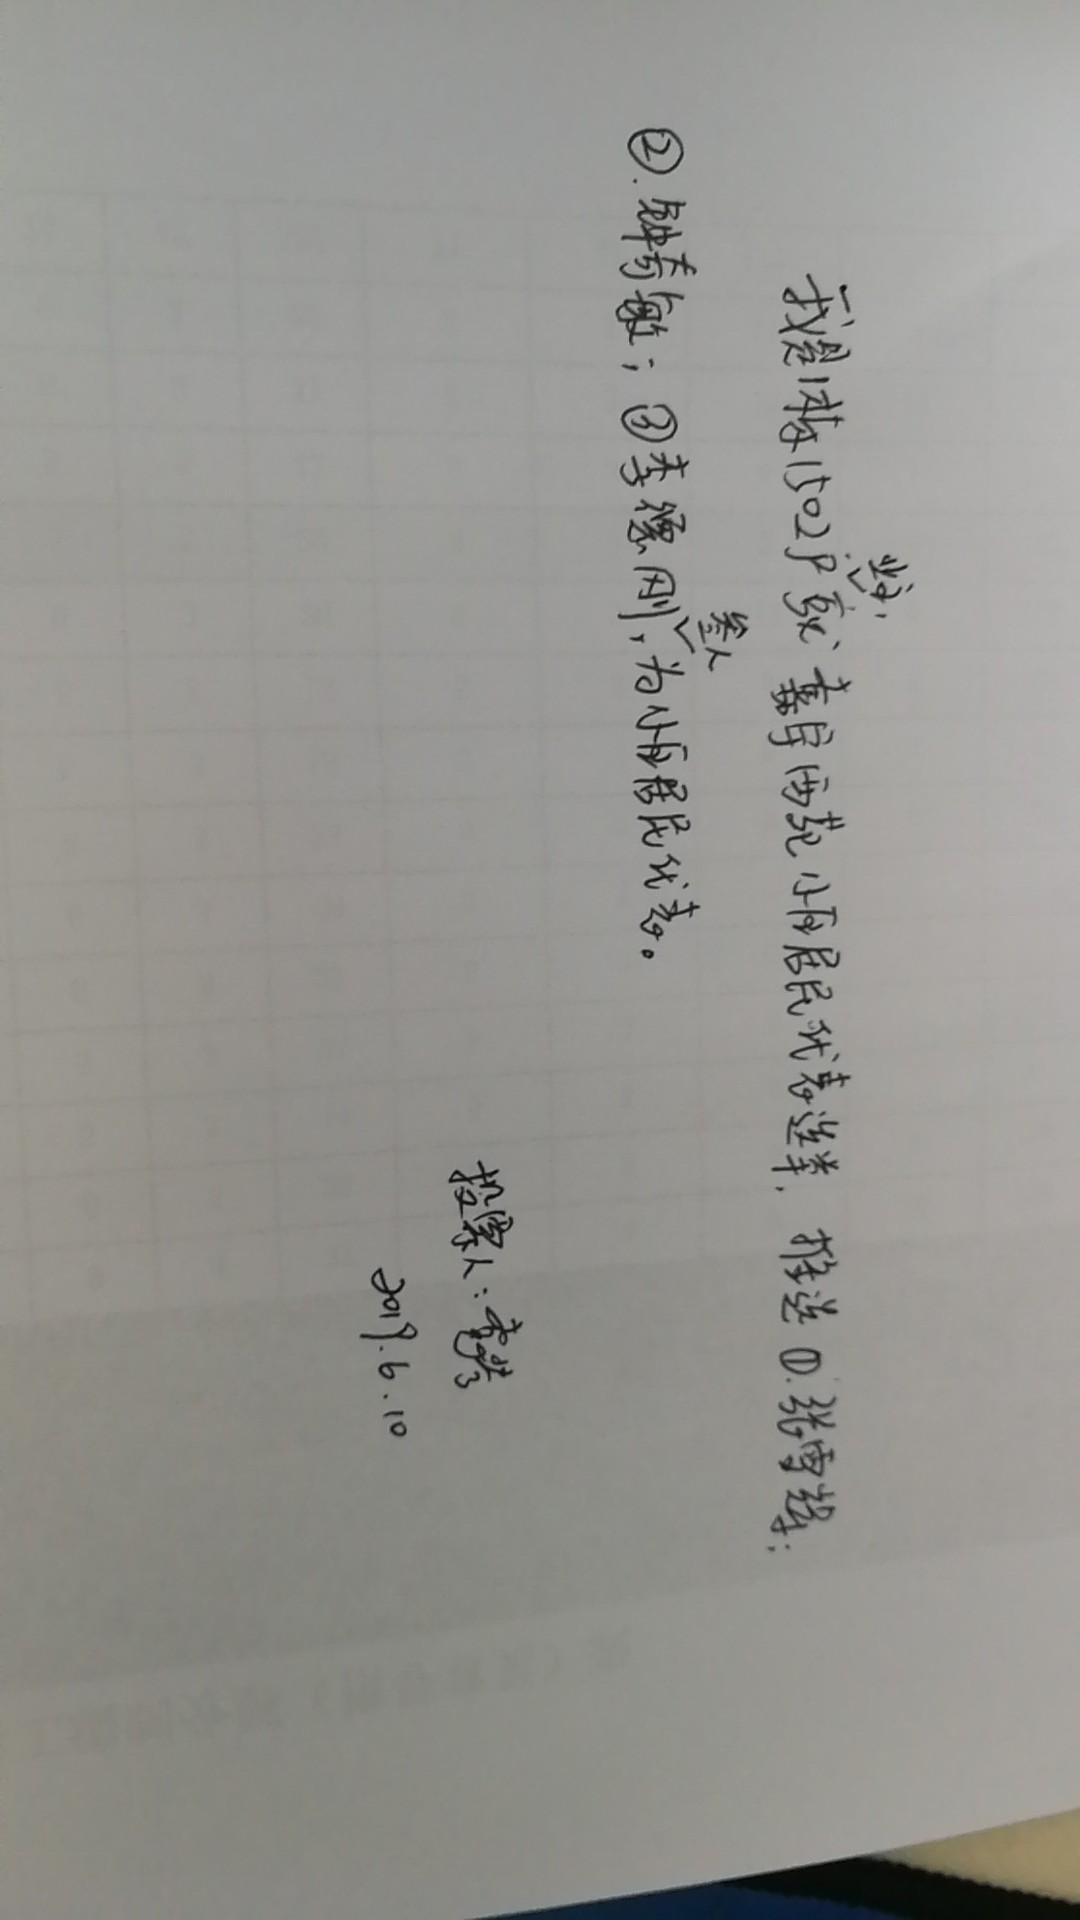 我是1栋1502户业主,就嘉宇西苑小区居民代表选举,推选①.张雪辉;
②.钟寿敏;③李德刚,叁人为小区居民代表。
投票人:李
2019.6.10